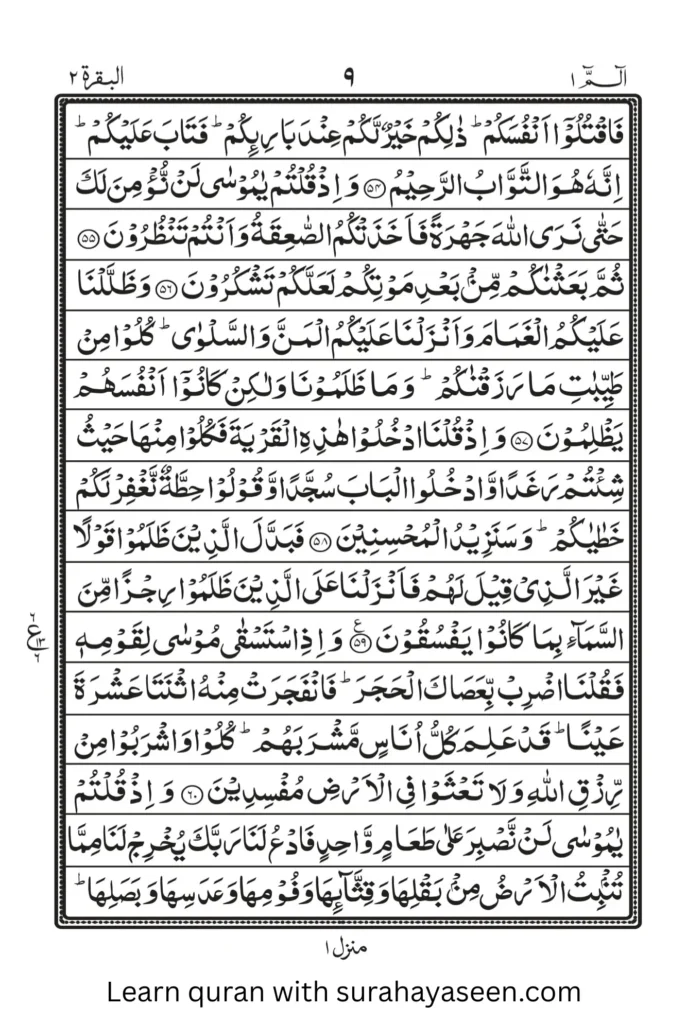 البقرة ٢
٩
الٓمّٓ ١
فَاقْتُلُوْۤا اَنْفُسَكُمْ ؕ ذٰلِكُمْ خَيْرٌ لَّكُمْ عِنْدَ بَارِئِكُمْ ؕ فَتَابَ عَلَيْكُمْ ؕ
اِنَّهٗ هُوَ التَّوَّابُ الرَّحِيْمُ ﴿۵۴﴾ وَ اِذْ قُلْتُمْ يٰمُوْسٰى لَنْ نُّؤْمِنَ لَكَ
حَتّٰى نَرَى اللّٰهَ جَهْرَةً فَاَخَذَتْكُمُ الصّٰعِقَةُ وَ اَنْتُمْ تَنْظُرُوْنَ ﴿۵۵﴾
ثُمَّ بَعَثْنٰكُمْ مِّنْۢ بَعْدِ مَوْتِكُمْ لَعَلَّكُمْ تَشْكُرُوْنَ ﴿۵۶﴾ وَ ظَلَّلْنَا
عَلَيْكُمُ الْغَمَامَ وَ اَنْزَلْنَا عَلَيْكُمُ الْمَنَّ وَ السَّلْوٰى ؕ كُلُوْا مِنْ
طَيِّبٰتِ مَا رَزَقْنٰكُمْ ؕ وَ مَا ظَلَمُوْنَا وَ لٰكِنْ كَانُوْۤا اَنْفُسَهُمْ
يَظْلِمُوْنَ ﴿۵۷﴾ وَ اِذْ قُلْنَا ادْخُلُوْا هٰذِهِ الْقَرْيَةَ فَكُلُوْا مِنْهَا حَيْثُ
شِئْتُمْ رَغَدًا وَّ ادْخُلُوا الْبَابَ سُجَّدًا وَّ قُوْلُوْا حِطَّةٌ نَّغْفِرْ لَكُمْ
خَطٰيٰكُمْ ؕ وَ سَنَزِيْدُ الْمُحْسِنِيْنَ ﴿۵۸﴾ فَبَدَّلَ الَّذِيْنَ ظَلَمُوْا قَوْلًا
غَيْرَ الَّذِىْ قِيْلَ لَهُمْ فَاَنْزَلْنَا عَلَى الَّذِيْنَ ظَلَمُوْا رِجْزًا مِّنَ
السَّمَآءِ بِمَا كَانُوْا يَفْسُقُوْنَ ﴿۵۹﴾ ع وَ اِذِ اسْتَسْقٰى مُوْسٰى لِقَوْمِهٖ
فَقُلْنَا اضْرِبْ بِّعَصَاكَ الْحَجَرَ ؕ فَانْفَجَرَتْ مِنْهُ اثْنَتَا عَشْرَةَ
عَيْنًا ؕ قَدْ عَلِمَ كُلُّ اُنَاسٍ مَّشْرَبَهُمْ ؕ كُلُوْا وَ اشْرَبُوْا مِنْ
رِّزْقِ اللّٰهِ وَ لَا تَعْثَوْا فِى الْاَرْضِ مُفْسِدِيْنَ ﴿۶۰﴾ وَ اِذْ قُلْتُمْ
يٰمُوْسٰى لَنْ نَّصْبِرَ عَلٰى طَعَامٍ وَّاحِدٍ فَادْعُ لَنَا رَبَّكَ يُخْرِجْ لَنَا مِمَّا
تُنْۢبِتُ الْاَرْضُ مِنْۢ بَقْلِهَا وَ قِثَّآئِهَا وَ فُوْمِهَا وَ عَدَسِهَا وَ بَصَلِهَا ؕ
منزل ١
Learn quran with surahayaseen.com